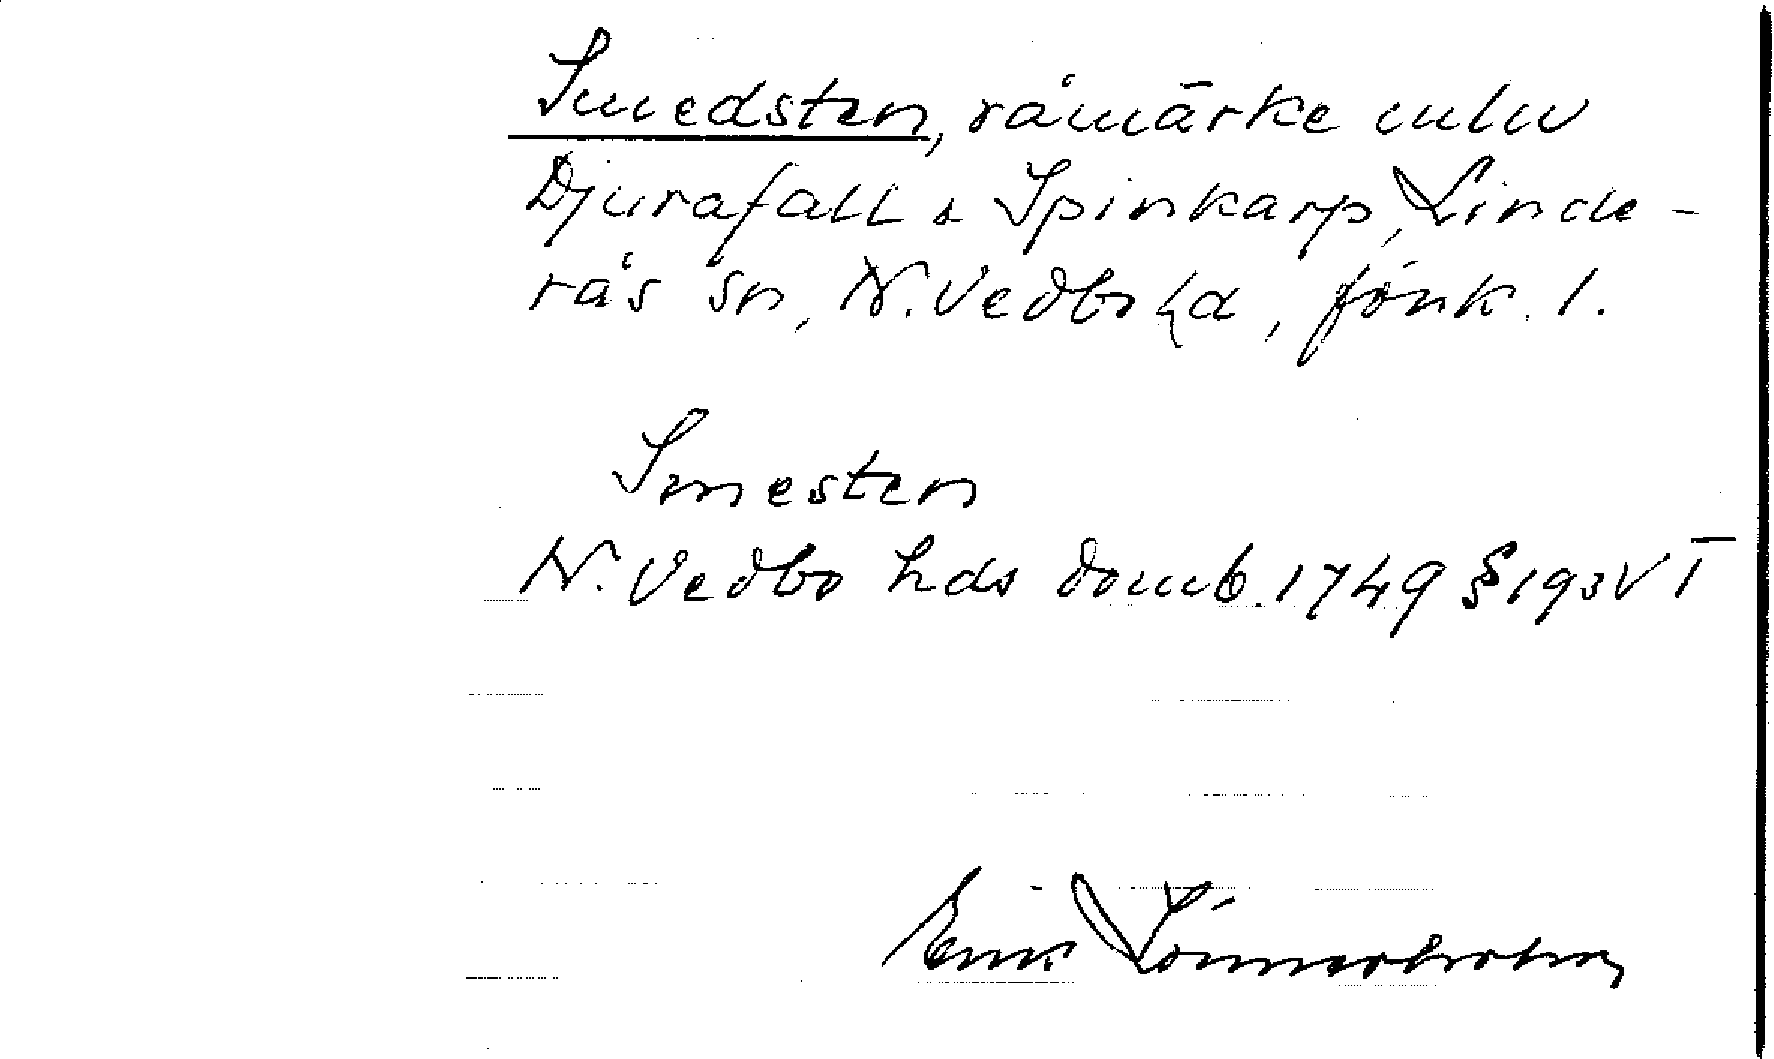 Smedsten, råmärke mlw
Djurafall & Spinkarp, Linde-
rås sn, N. Vedbo hd, Jönk. l.
Smesten
N. Vedbo hds domb. 1749 § 193 VT
Erik Lönnerholm